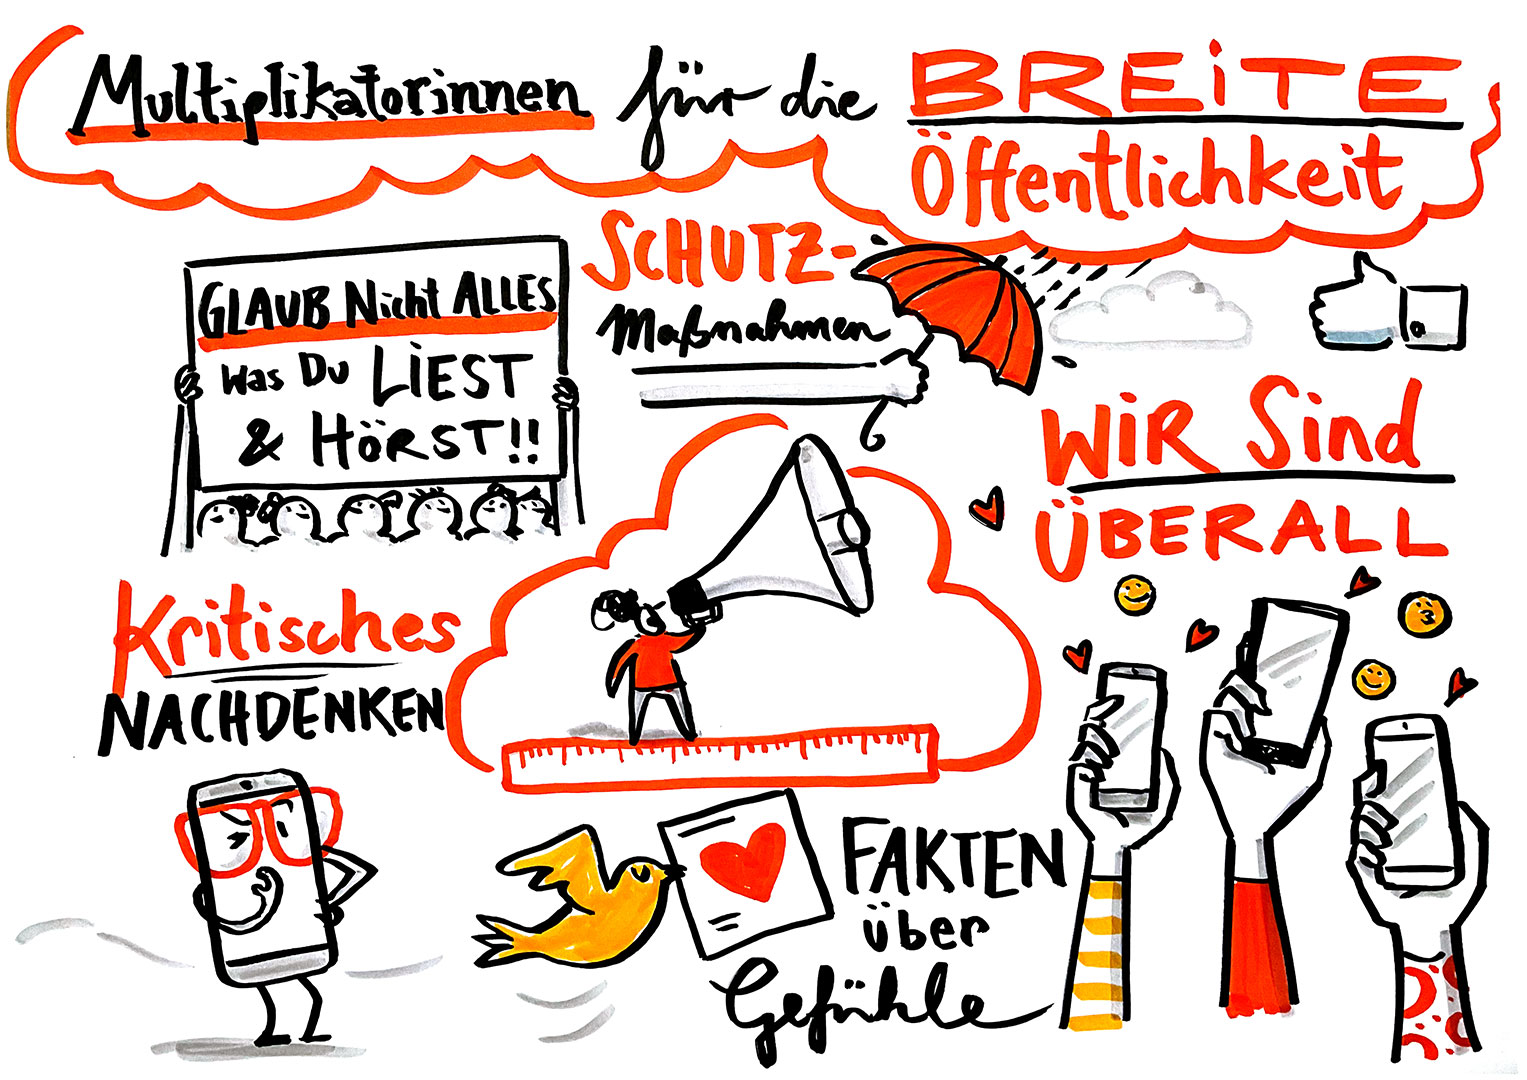 Multiplikatorinnen für die BREiTE
Öffentlichkeit
SCHUTZ-
Maßnahmen
GLAUB Nicht ALLES
Was Du LiEST
& HÖRST!!
WiR Sind
ÜBERALL
Kritisches
NACHDENKEN
FAKTEN
über
Gefühle